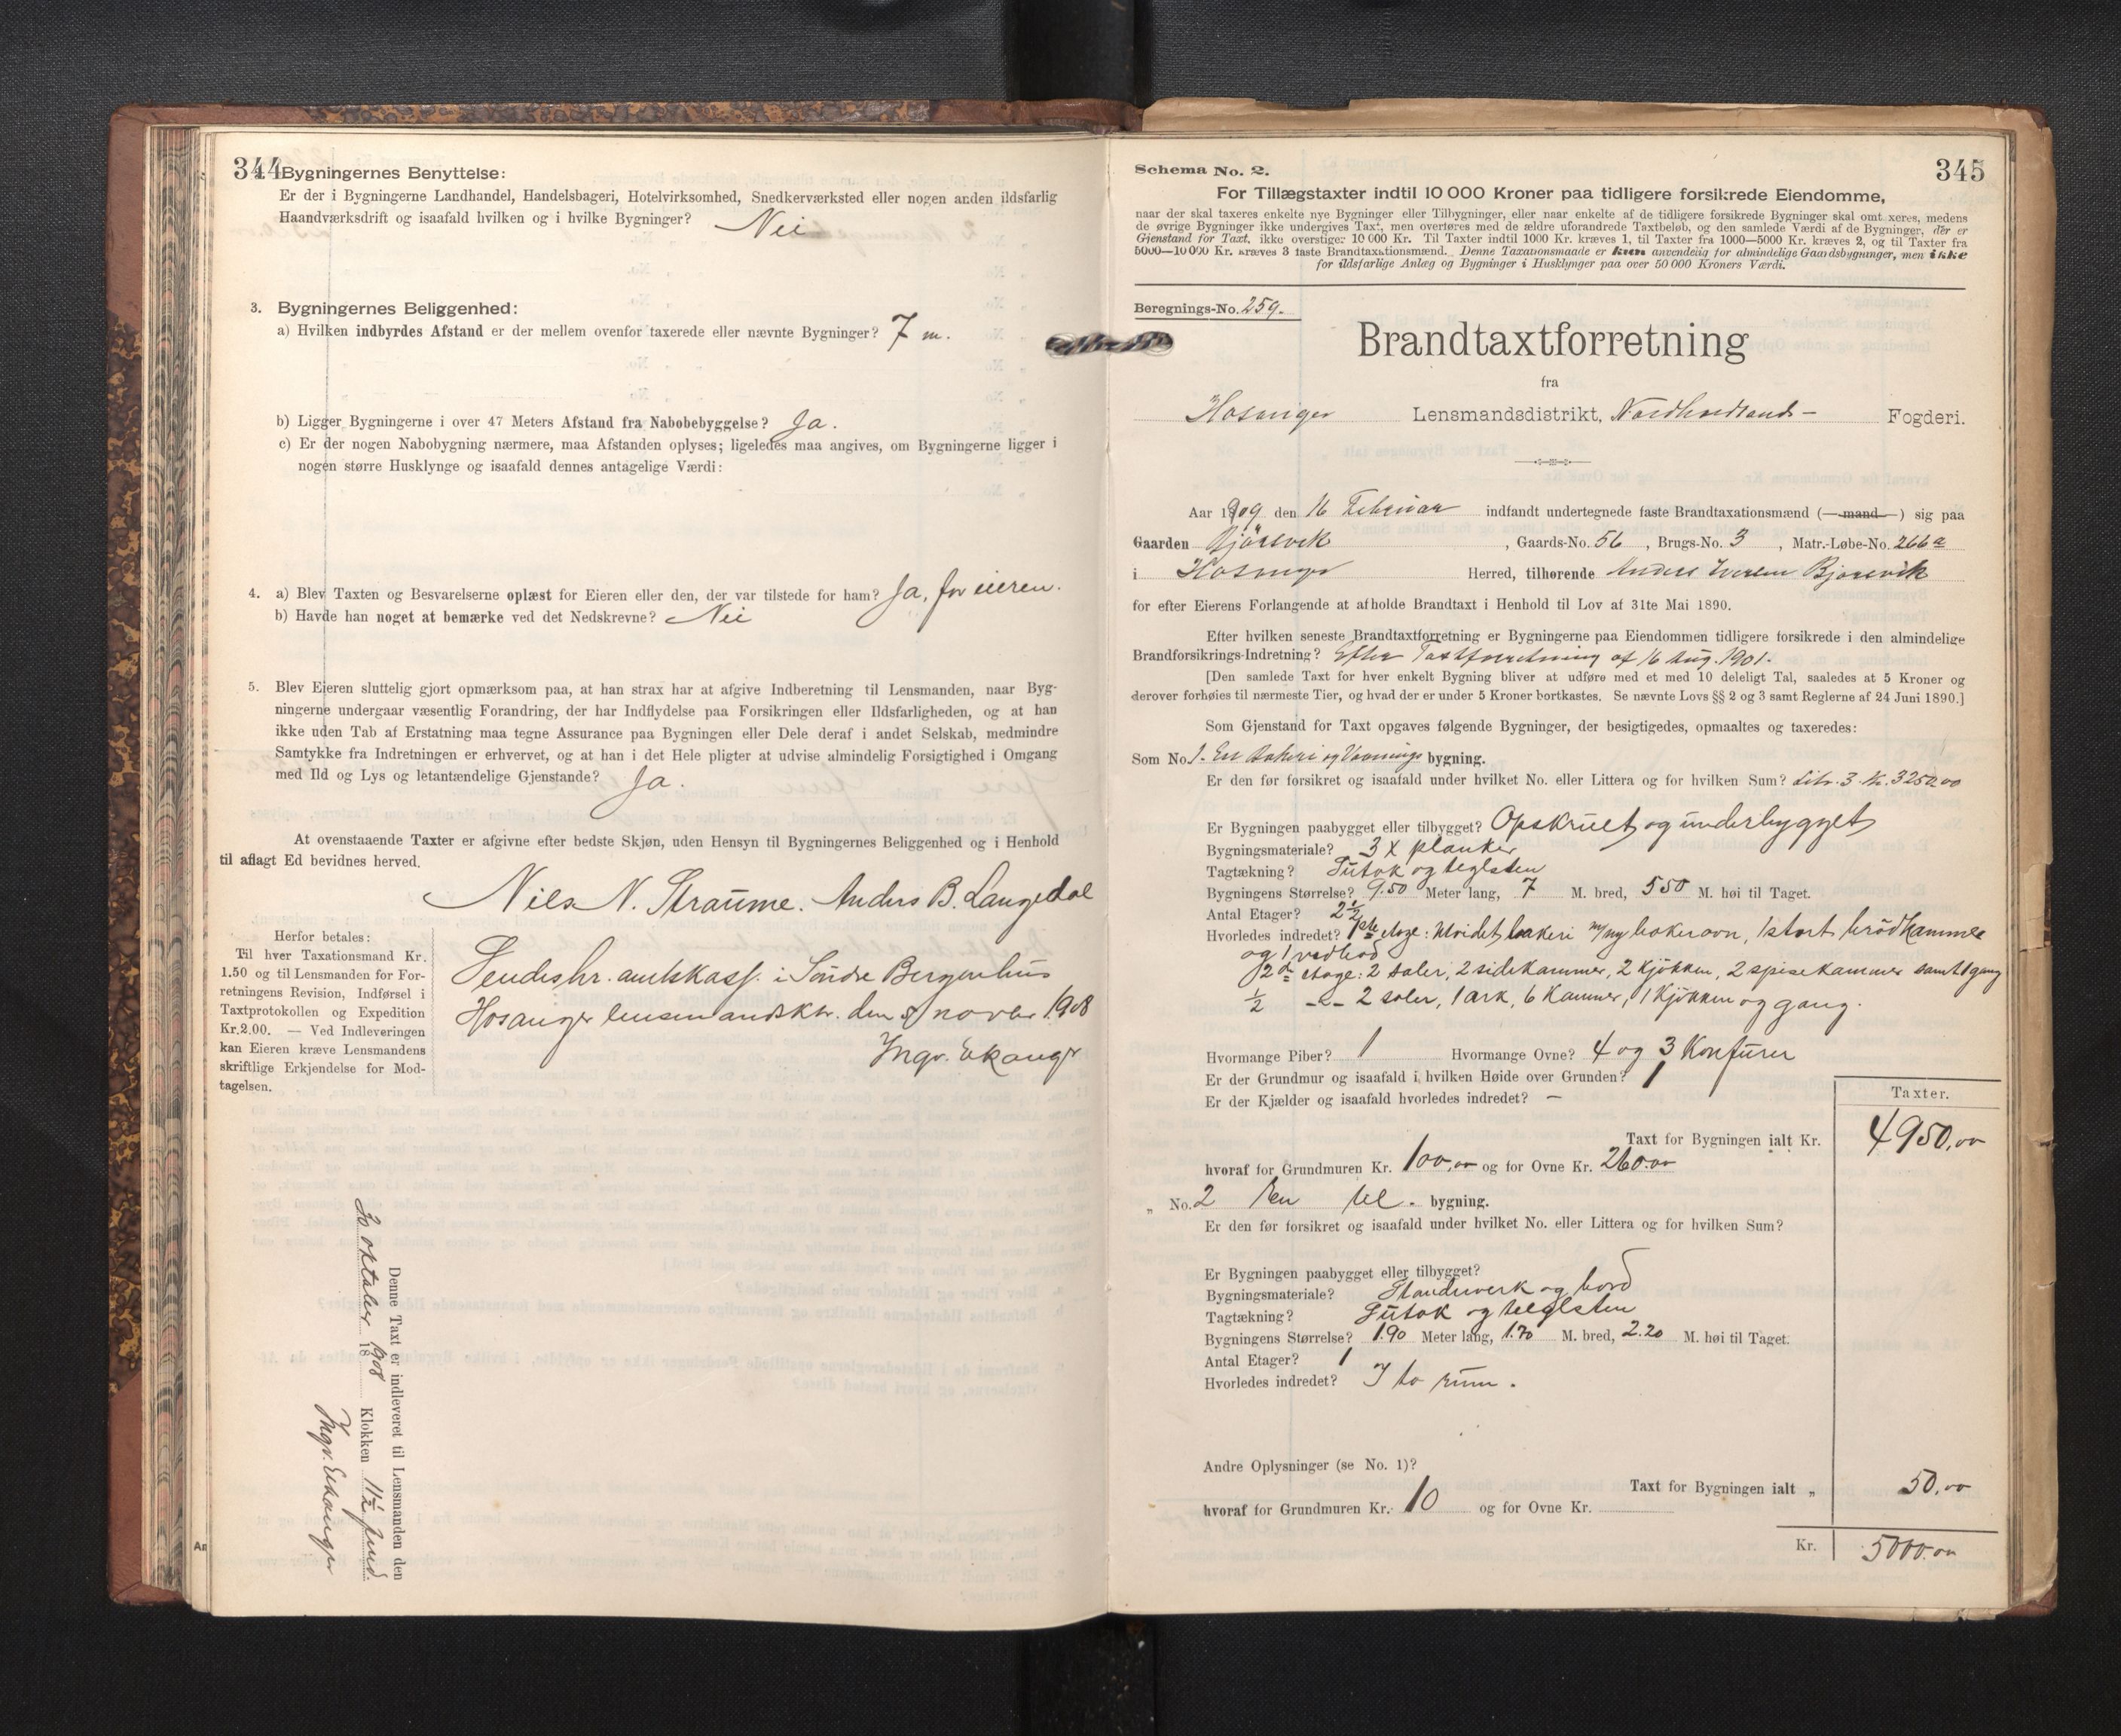 344
2. Bygningernes Benyttelse:
Er der i Bygningerne Landhandel, Handelsbageri, Hotelvirksomhed, Snedkerværksted eller nogen anden ildsfarlig
Haandværksdrift og isaafald hvilken og i hvilke Bygninger? Nei
3. Bygningernes Beliggenhed:
a) Hvilken indbyrdes Afstand er der mellem ovenfor taxerede eller nævnte Bygninger? 7 m.
b) Ligger Bygningerne i over 47 Meters Afstand fra Nabobebyggelse? Ja.
c) Er der nogen Nabobygning nærmere, maa Afstanden oplyses; ligeledes maa angives, om Bygningerne ligger i
nogen større Husklynge og isaafald dennes antagelige Værdi:
4. a) Blev Taxten og Besvarelserne oplæst for Eieren eller den, der var tilstede for ham? Ja, for eieren.
b) Havde han noget at bemærke ved det Nedskrevne? Nei
5. Blev Eieren sluttelig gjort opmærksom paa, at han strax har at afgive Indberetning til Lensmanden, naar Byg-
ningerne undergaar væsentlig Forandring, der har Indflydelse paa Forsikringen eller Ildsfarligheden, og at han
ikke uden Tab af Erstatning maa tegne Assurance paa Bygningen eller Dele deraf i andet Selskab, medmindre
Samtykke fra Indretningen er erhvervet, og at han i det Hele pligter at udvise almindelig Forsigtighed i Omgang
med Ild og Lys og letantændelige Gjenstande? Ja.
At ovenstaaende Taxter er afgivne efter bedste Skjøn, uden Hensyn til Bygningernes Beliggenhed og i Henhold
til aflagt Ed bevidnes herved.
Nils N. Straume. Anders B. Langedal
Herfor betales:
Til hver Taxationsmand Kr.
1.50 og til Lensmanden for For-
retningens Revision, Indførsel i
Taxtprotokollen og Expedition
Kr. 2.00. — Ved Indleveringen
kan Eieren kræve Lensmandens
skriftlige Erkjendelse for Mod-
tagelsen.
Sendes hr. amtskass. i Søndre Bergenhus
Hosanger lensmandsktr. den novbr 1908
Ingv. Eikanger
Denne Taxt er indleveret til Lensmanden den
30 oktober 1908 Klokken 11½ fmd.
Ingv. Eikanger
345
Schema No. 2.
For Tillægstaxter indtil 10 000 Kroner paa tidligere forsikrede Eiendomme,
naar der skal taxeres enkelte nye Bygninger eller Tilbygninger, eller naar enkelte af de tidligere forsikrede Bygninger skal omtaxeres, medens
de øvrige Bygninger ikke undergives Taxt, men overføres med de ældre uforandrede Taxtbeløb, og den samlede Værdi af de Bygninger, der er
Gjenstand for Taxt, ikke overstiger 10 000 Kr. Til Taxter indtil 1000 Kr. kræves 1, til Taxter fra 1000—5000 Kr. kræves 2, og til Taxter fra
5000—10 000 Kr. kræves 3 faste Brandtaxationsmænd. Denne Taxationsmaade er kun anvendelig for almindelige Gaardsbygninger, men ikke
for ildsfarlige Anlæg og Bygninger i Husklynger paa over 50 000 Kroners Værdi.
Beregnings-No. 259.
Brandtaxtforretning
fra
Hosanger Lensmandsdistrikt, Nordhordlands- Fogderi.
Aar 1909 den 16 Februar indfandt undertegnede faste Brandtaxationsmænd (—mand—) sig paa
Gaarden Bjørsvik, Gaards-No. 56, Brugs-No. 3, Matr.-Løbe-No. 266a
i Hosanger Herred, tilhørende Anders Iversen Bjørsvik
for efter Eierens Forlangende at afholde Brandtaxt i Henhold til Lov af 31te Mai 1890.
Efter hvilken seneste Brandtaxtforretning er Bygningerne paa Eiendommen tidligere forsikrede i den almindelige
Brandforsikrings-Indretning? Efter Taxtforretning af 16 Aug. 1901.
[Den samlede Taxt for hver enkelt Bygning bliver at udføre med et med 10 deleligt Tal, saaledes at 5 Kroner og
derover forhøies til nærmeste Tier, og hvad der er under 5 Kroner bortkastes. Se nævnte Lovs §§ 2 og 3 samt Reglerne af 24 Juni 1890.]
Som Gjenstand for Taxt opgaves følgende Bygninger, der besigtigedes, opmaaltes og taxeredes:
Som No. 1. En Bakeri og Vaanings bygning.
Er den før forsikret og isaafald under hvilket No. eller Littera og for hvilken Sum? Litr. 3. Kr. 3250.00
Er Bygningen paabygget eller tilbygget? Opskruet og underbygget
Bygningsmateriale? 3 X planker
Tagtækning? Sutak og teglsten
Bygningens Størrelse? 9.50 Meter lang, 7 M. bred, 5.50 M. høi til Taget.
Antal Etager? 2½
Hvorledes indredet? 1ste etage: Utvidet bakeri m/ny bakerovn, 1 stort brödkammer
og 1 vedbod
2den etage: 2 saler, 2 sidekammer, 2 kjøkken, 2 spisekammer samt gang
½ -"- 2 saler, 1 ark, 6 kammer, 1 kjøkken og gang.
Hvormange Piber? 1 Hvormange Ovne? 4 og 3 Komfurer
Er der Grundmur og isaafald i hvilken Høide over Grunden? 1
Er der Kjælder og isaafald hvorledes indredet? —
Taxter.
Taxt for Bygningen ialt Kr. 4950,00
hvoraf for Grundmuren Kr. 100,00 og for Ovne Kr. 260.00
„ No. 2 En bygning.
Er den før forsikret og isaafald under hvilket No. eller Littera og for hvilken Sum?
Er Bygningen paabygget eller tilbygget?
Bygningsmateriale? Standerverk og bord
Tagtækning? Sutak og teglsten
Bygningens Størrelse? 1.90 Meter lang, 1.70 M. bred, 2.20 M. høi til Taget.
Antal Etager? 1
Hvorledes indredet? I to rum.
Andre Oplysninger (se No. 1)?
Taxt for Bygningen ialt „ 50.00
hvoraf for Grundmuren Kr. 10 og for Ovne Kr.
Kr. 5000.00